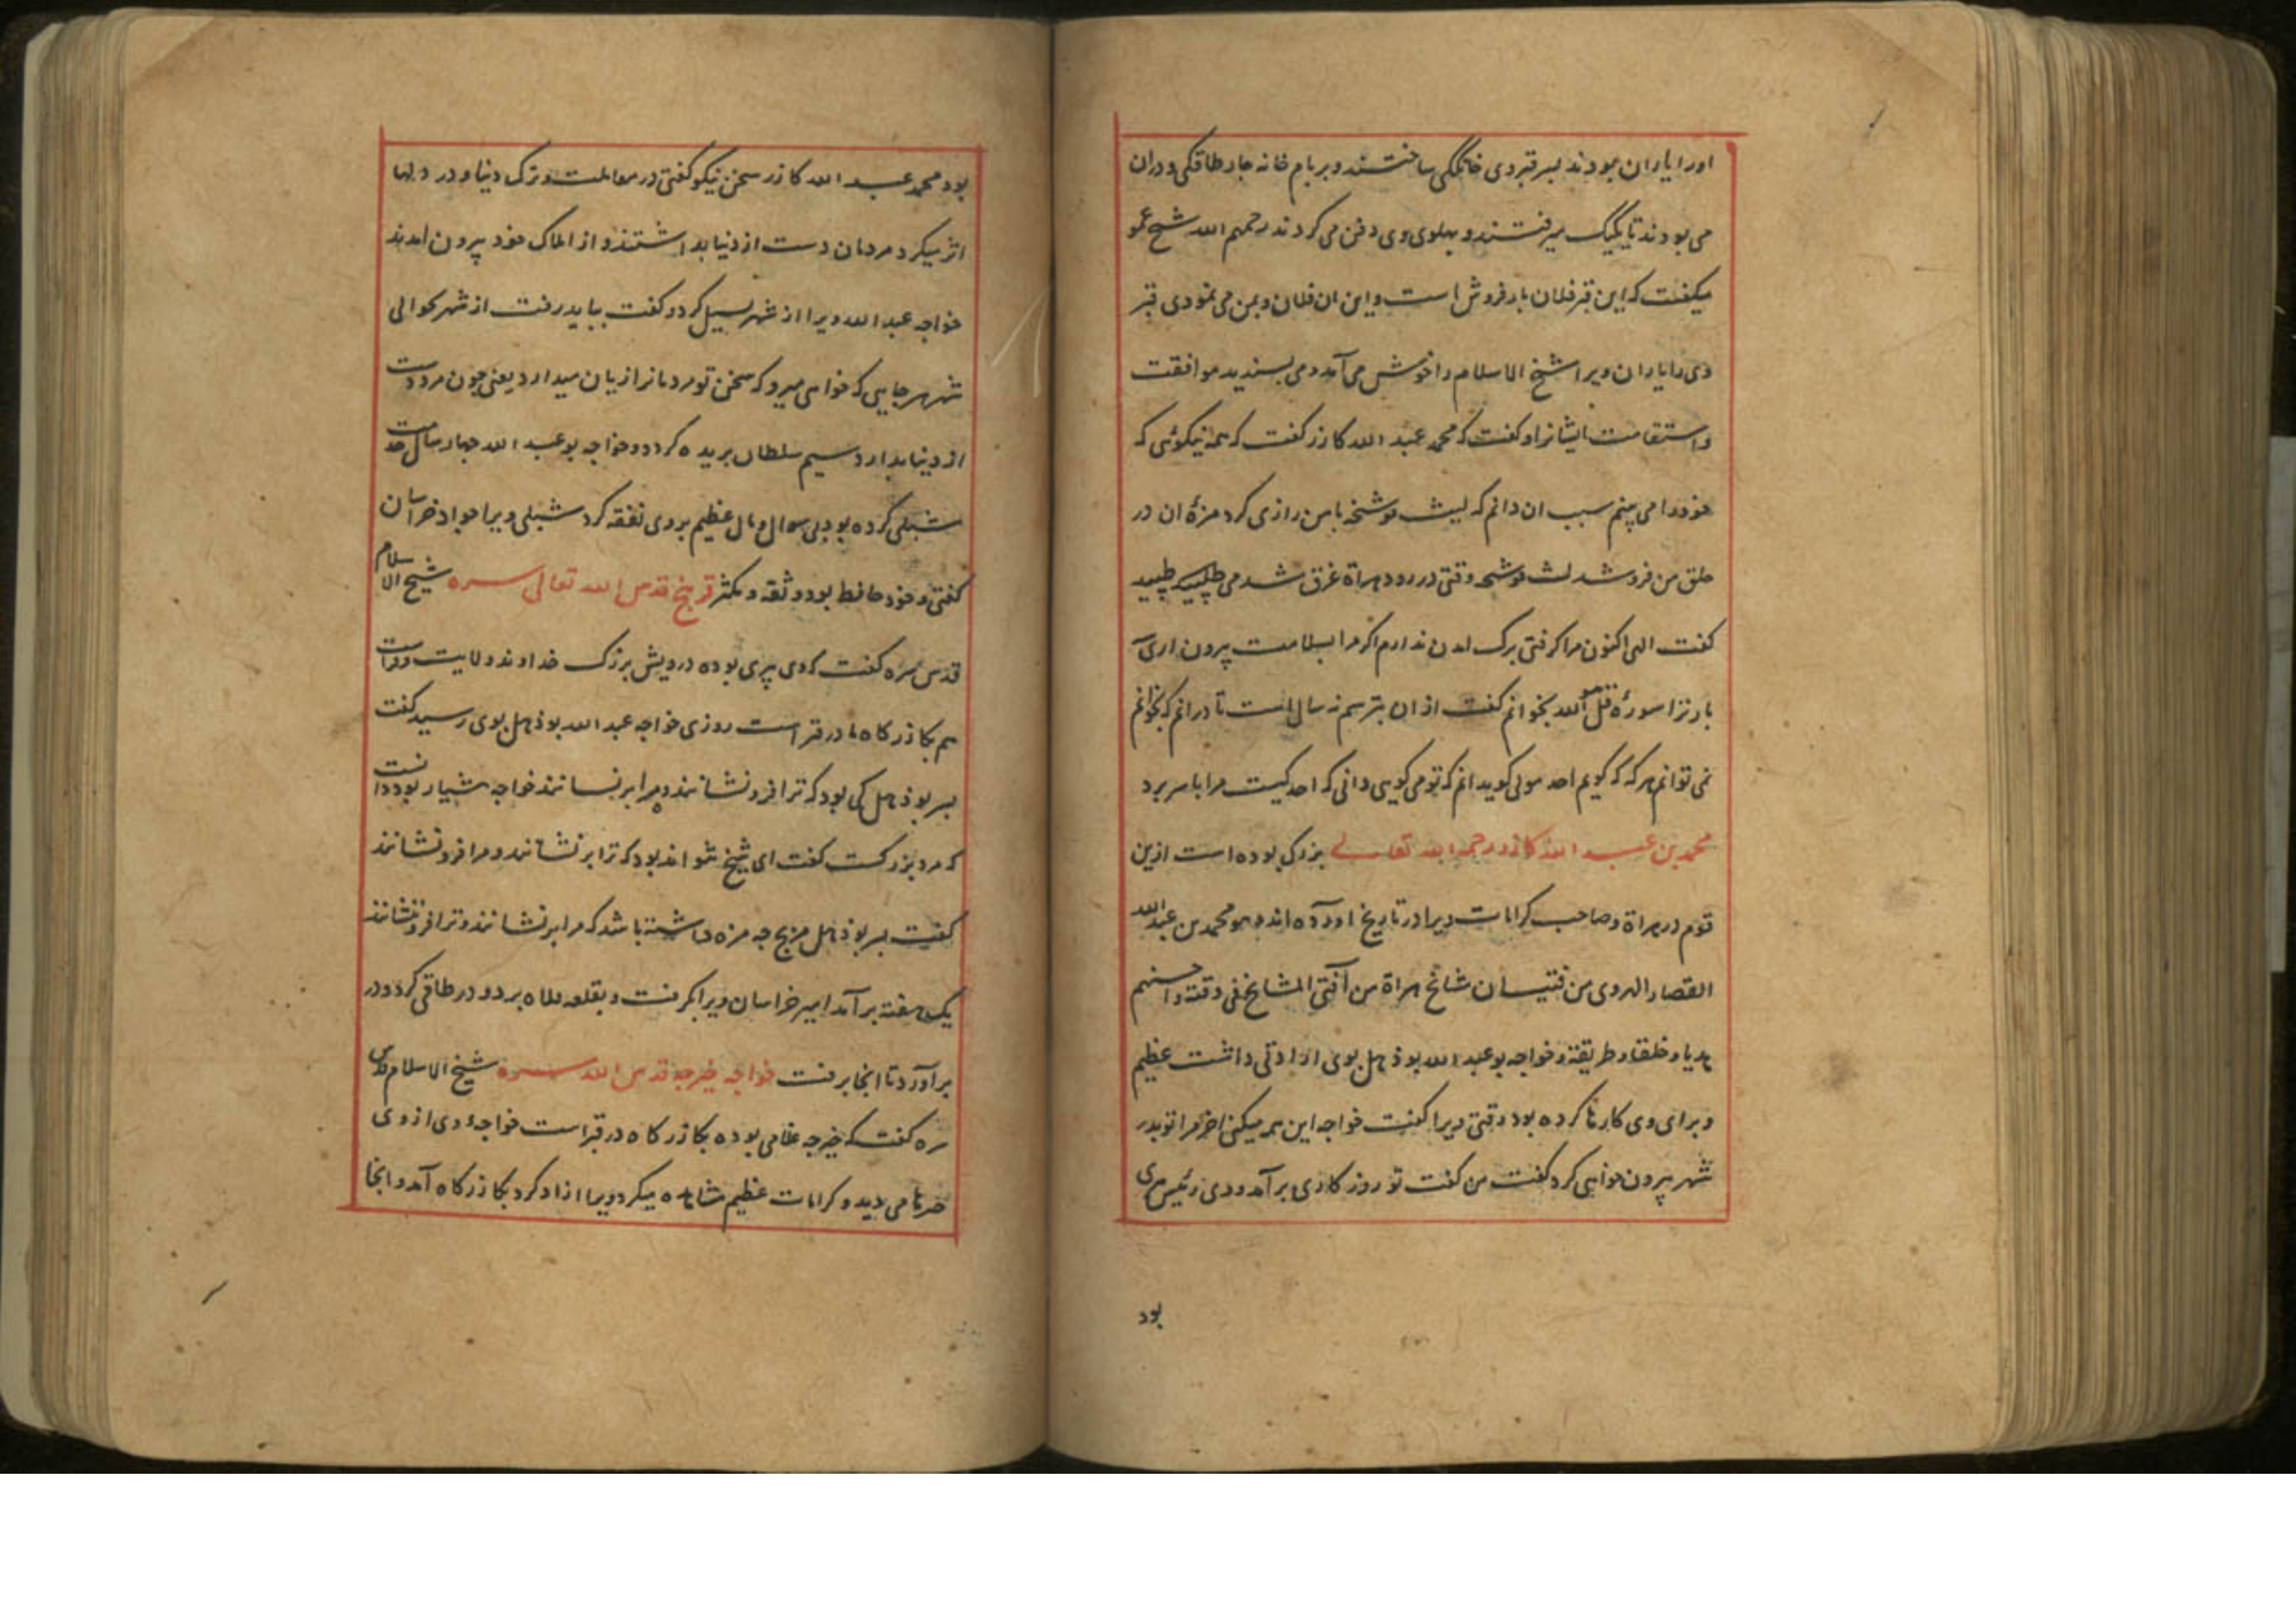 اورا یاران بودند بسر قبر وی خانگکی ساختند و بر بام خانه چار طاقکی و دران
می بودند تا یکیک میرفتند و پهلوی وی دفن می کردند رحمهم الله شیخ عمو
میکفت که این قبر فلان بار فروش است و این ان فلان و بمن می نمودی قبر
وی را یاران ویرا شیخ الاسلام را خوش می آمد و می پسندید موافقت
و استقامت ایشانرا و کفت که محمد عبد الله کازر کفت که همه نیکوئی که
خود را می بینم سبب ان دانم که لیث فوشنجه با من رازی کرد مزهٔ ان در
حلق من فرو شد لیث فوشنجه وقتی در رود هراة غرق شد می طپید
کفت الهی اکنون مرا کرفتی برک امدن ندارم اکر مرا بسلامت بیرون اری
بار ترا سورهٔ قل هو الله بخوانم کفت از ان بترسم نه سال است تا در انم که بخوانم
نمی توانم هر که که کویم احد مولی کوید انم که تو می کویی دانی که احد کیست مرا با سر برد
محمد بن عبد الله کازر رحمه الله تعالی بزرک بوده است ازین
قوم در هراة و صاحب کرامات ویرا در تاریخ اورده اند هو محمد بن عبد الله
القصار الهروی من فتیان مشایخ هراة من آفتی المشایخ فی وقته و احسنهم
هدیا و خلقا و طریقة و خواجه بو عبد الله بوذهل بوی ارادتی داشت عظیم
و برای وی کارها کرده بود وقتی ویرا کفت خواجه این همه میکنی اخر مرا تو بدر
شهر بیرون خواهی کرد کفت من کفت تو روز کاری بر آمد و وی رئیس هری
بود
بود محمد عبد الله کازر سخن نیکو کفتی در معاملت و ترک دنیا و در دلها
اثر میکرد مردمان دست از دنیا بداشتند و از املاک خود بیرون امدند
خواجه عبد الله ویرا از شهر سبیل کرد و کفت بباید رفت از شهر حوالی
شهر هر جایی که خواهی میرو که سخن تو مردمانرا زیان میدارد یعنی چون مرد دست
از دنیا بدارد سیم سلطان بریده کردد و خواجه بو عبد الله چهار سال خدمت
شبلی کرده بود بی سوال و مال عظیم بر وی نفقه کرد شبلی ویرا جواد خراسان
کفتی و خود حافظ بود و ثقه و مکثر قریخ قدس الله تعالی سره شیخ الاسلام
قدس سره کفت که وی پیری بوده درویش بزرک خداوند ولایت و فراست
هم بکازرکاه ما در قبر است روزی خواجه عبد الله بوذهل بوی رسید کفت
بسر بوذهل کی بود که ترا فرو نشانند و مرا بر نشانند خواجه هشیار بود دانست
که مرد بزرکست کفت ای شیخ نتواند بود که ترا بر نشانند و مرا فرو نشانند
کفت بسر بوذهل مزیج چه مزه داشته باشد که مرا بر نشانند و ترا فرو نشانند
یک هفته بر آمد امیر خراسان ویرا بکرفت و بقلعه برد و در طاقی کرد و در
بر آورد تا انجا برفت خواجه خیرجه قدس الله سره شیخ الاسلام قدس
سره کفت که خیرجه غلامی بوده بکازرکاه در قبر است خواجهٔ وی از وی
خبرها می دید و کرامات عظیم مشاهده میکرد ویرا ازاد کرد بکازرکاه آمد و انجا